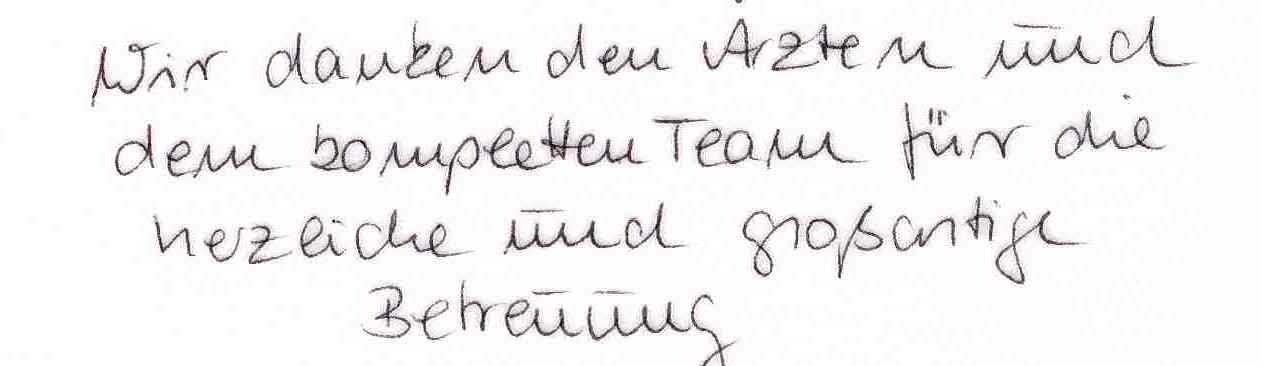 Wir danken den Ärzten und
dem kompletten Team für die
hezliche und großartige
Betreuung